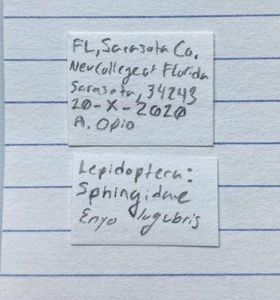 FL, Sarasota Co.
New College of Florida
Sarasota, 34243
20-X-2020
A. Opio
Lepidoptera:
Sphingidae
Enyo lugubris